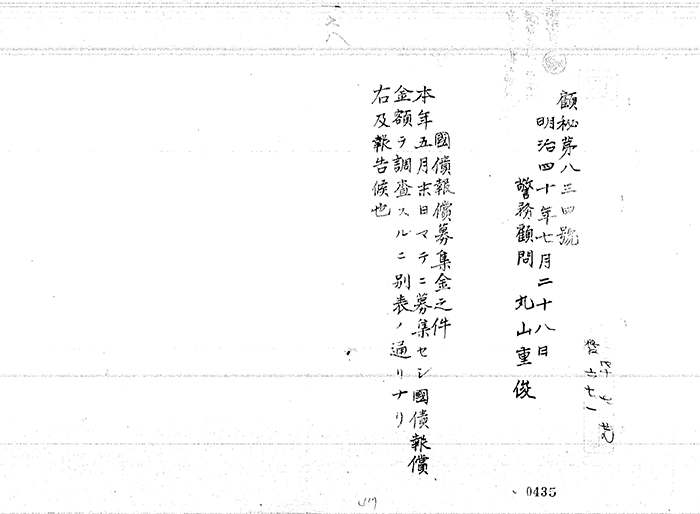 顧秘第八三四號
明治四十年七月二十八日
警務顧問 丸山重俊
國債報償募集金之件
本年五月末日マテニ募集セシ國債報償
金額ヲ調査スルニ別表ノ通リナリ
右及報告候也
0435